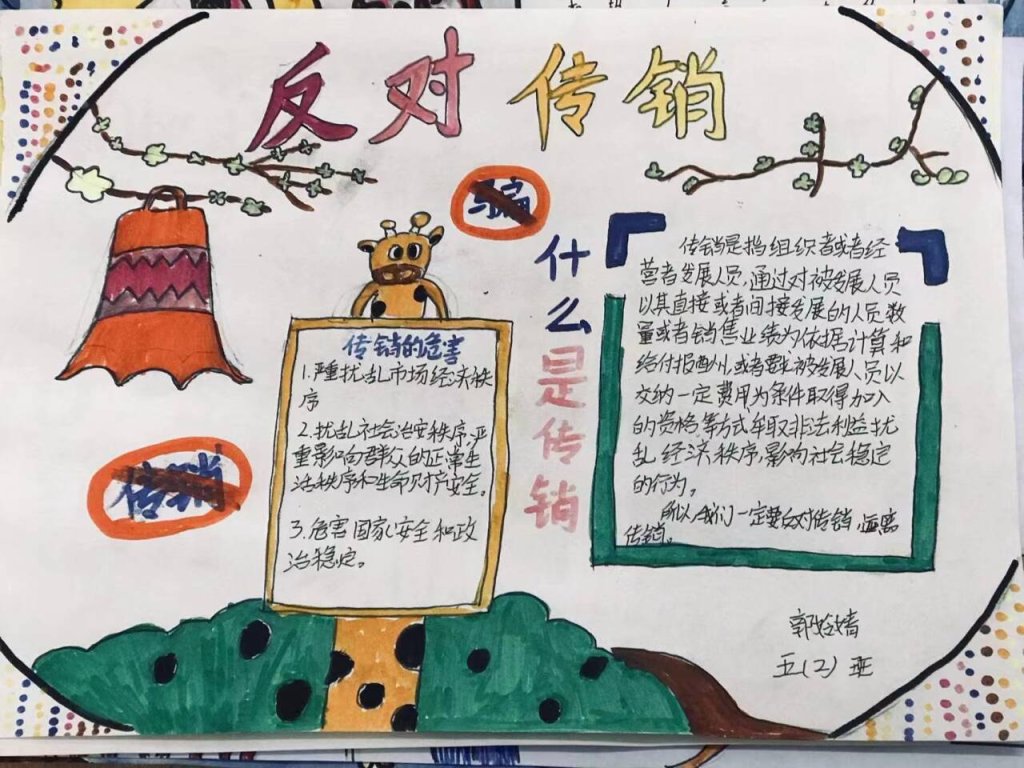 反对传销
骗
什么是传销
传销是指组织者或者经
营者发展人员,通过对被发展人员
以其直接或者间接发展的人员数
量或者销售业绩为依据计算和
给付报酬,或者要求被发展人员以
交纳一定费用为条件取得加入
的资格等方式牟取非法利益,扰
乱经济秩序,影响社会稳定
的行为。
所以我们一定要反对传销,远离
传销。
传销的危害
1.严重扰乱市场经济秩
序
2.扰乱社会治安秩序,严
重影响群众的正常生
活秩序和生命财产安全。
3.危害国家安全和政
治稳定。
传销
五(2)班